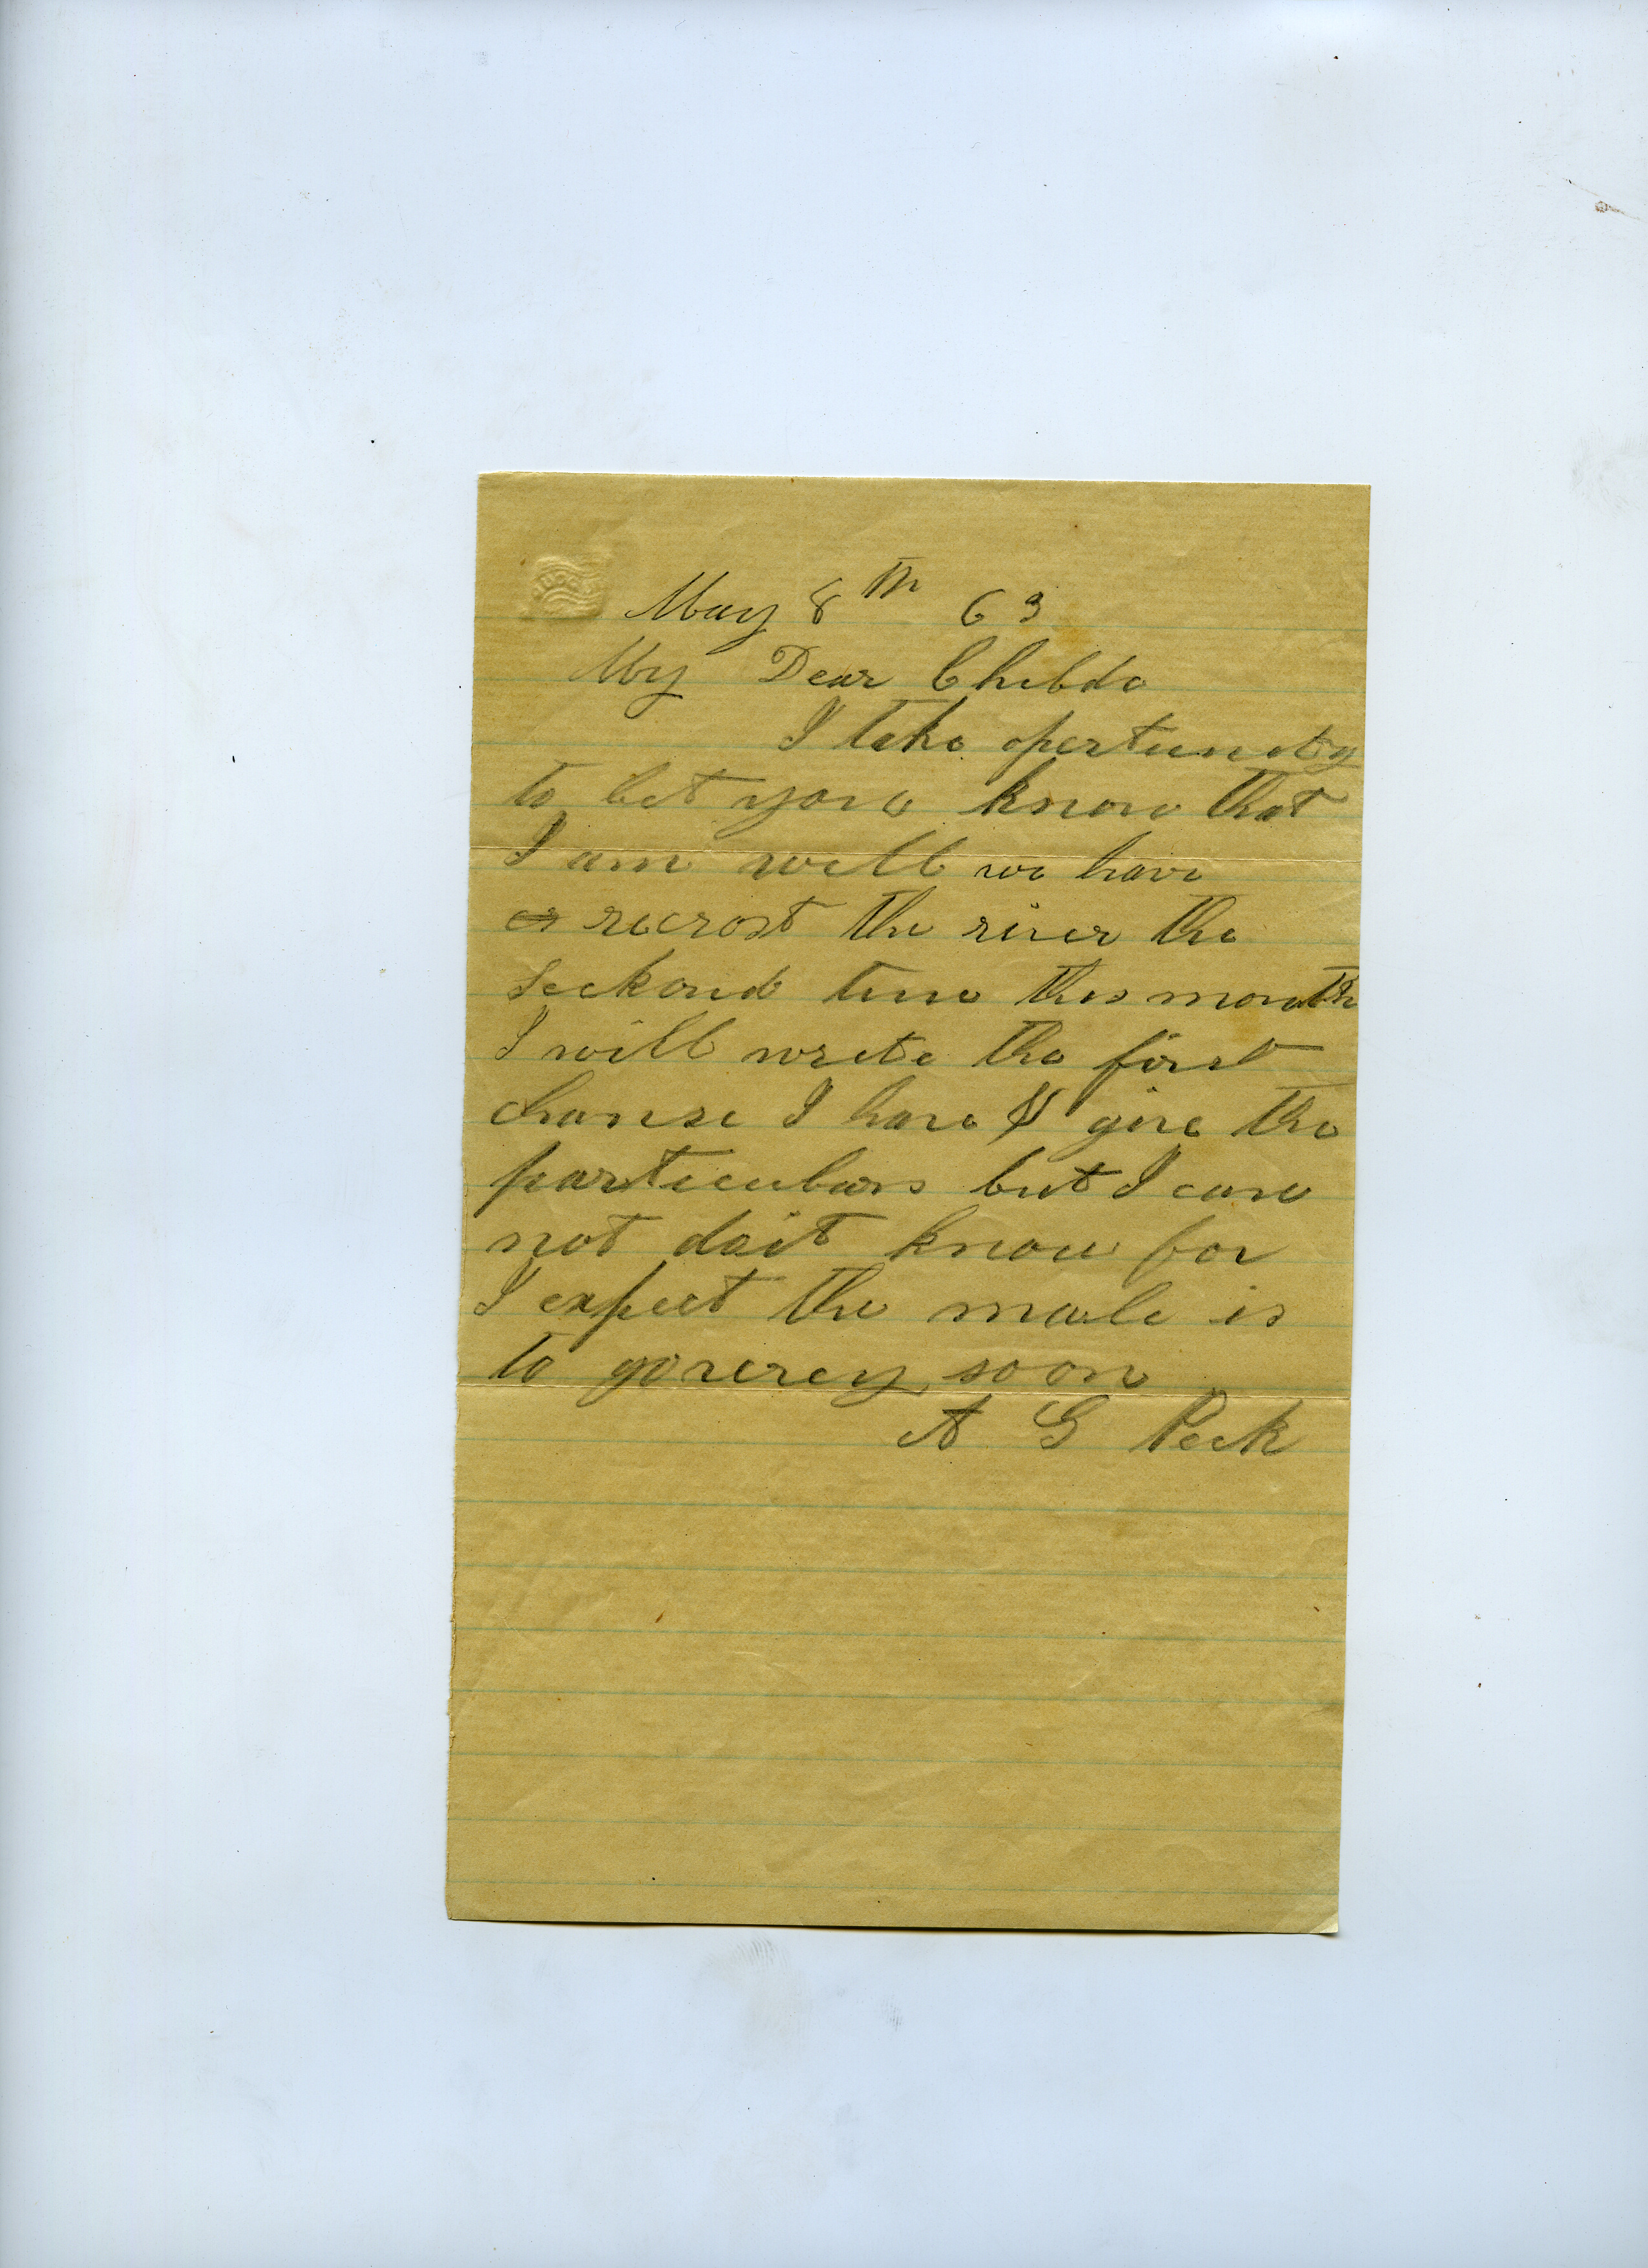 May 8th 63
My Dear Childe
I take opertunity
to let you know that
I am well we have
recrost the river the
seckond time this month
I will write the first
chanse I have & give the
particulars but I can
not doit know for
I expect the male is
to go soon
A G Peck